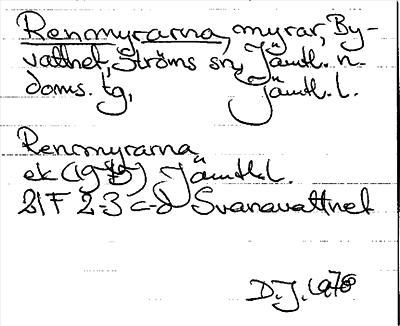 Renmyrarna, myrar, By-
vattnet, Ströms sn, Jämtl. n.
doms. tg, Jämtl. l.
Renmyrarna
ek (1975) Jämtl. l.
21F 2-3 c-d Svanavattnet
D.J. 1978